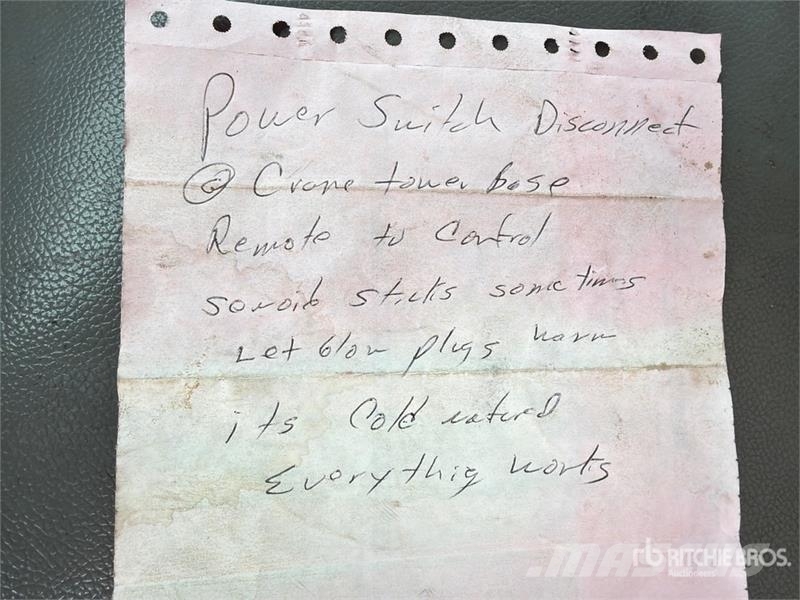 Power Switch Disconnect
@ Crane tower base
Remote to Control
sonoid sticks sometimes
Let Glow plugs warm
its Cold natured
Everythig works
.MASCUS
rb RITCHIE BROS.
Auctioneers